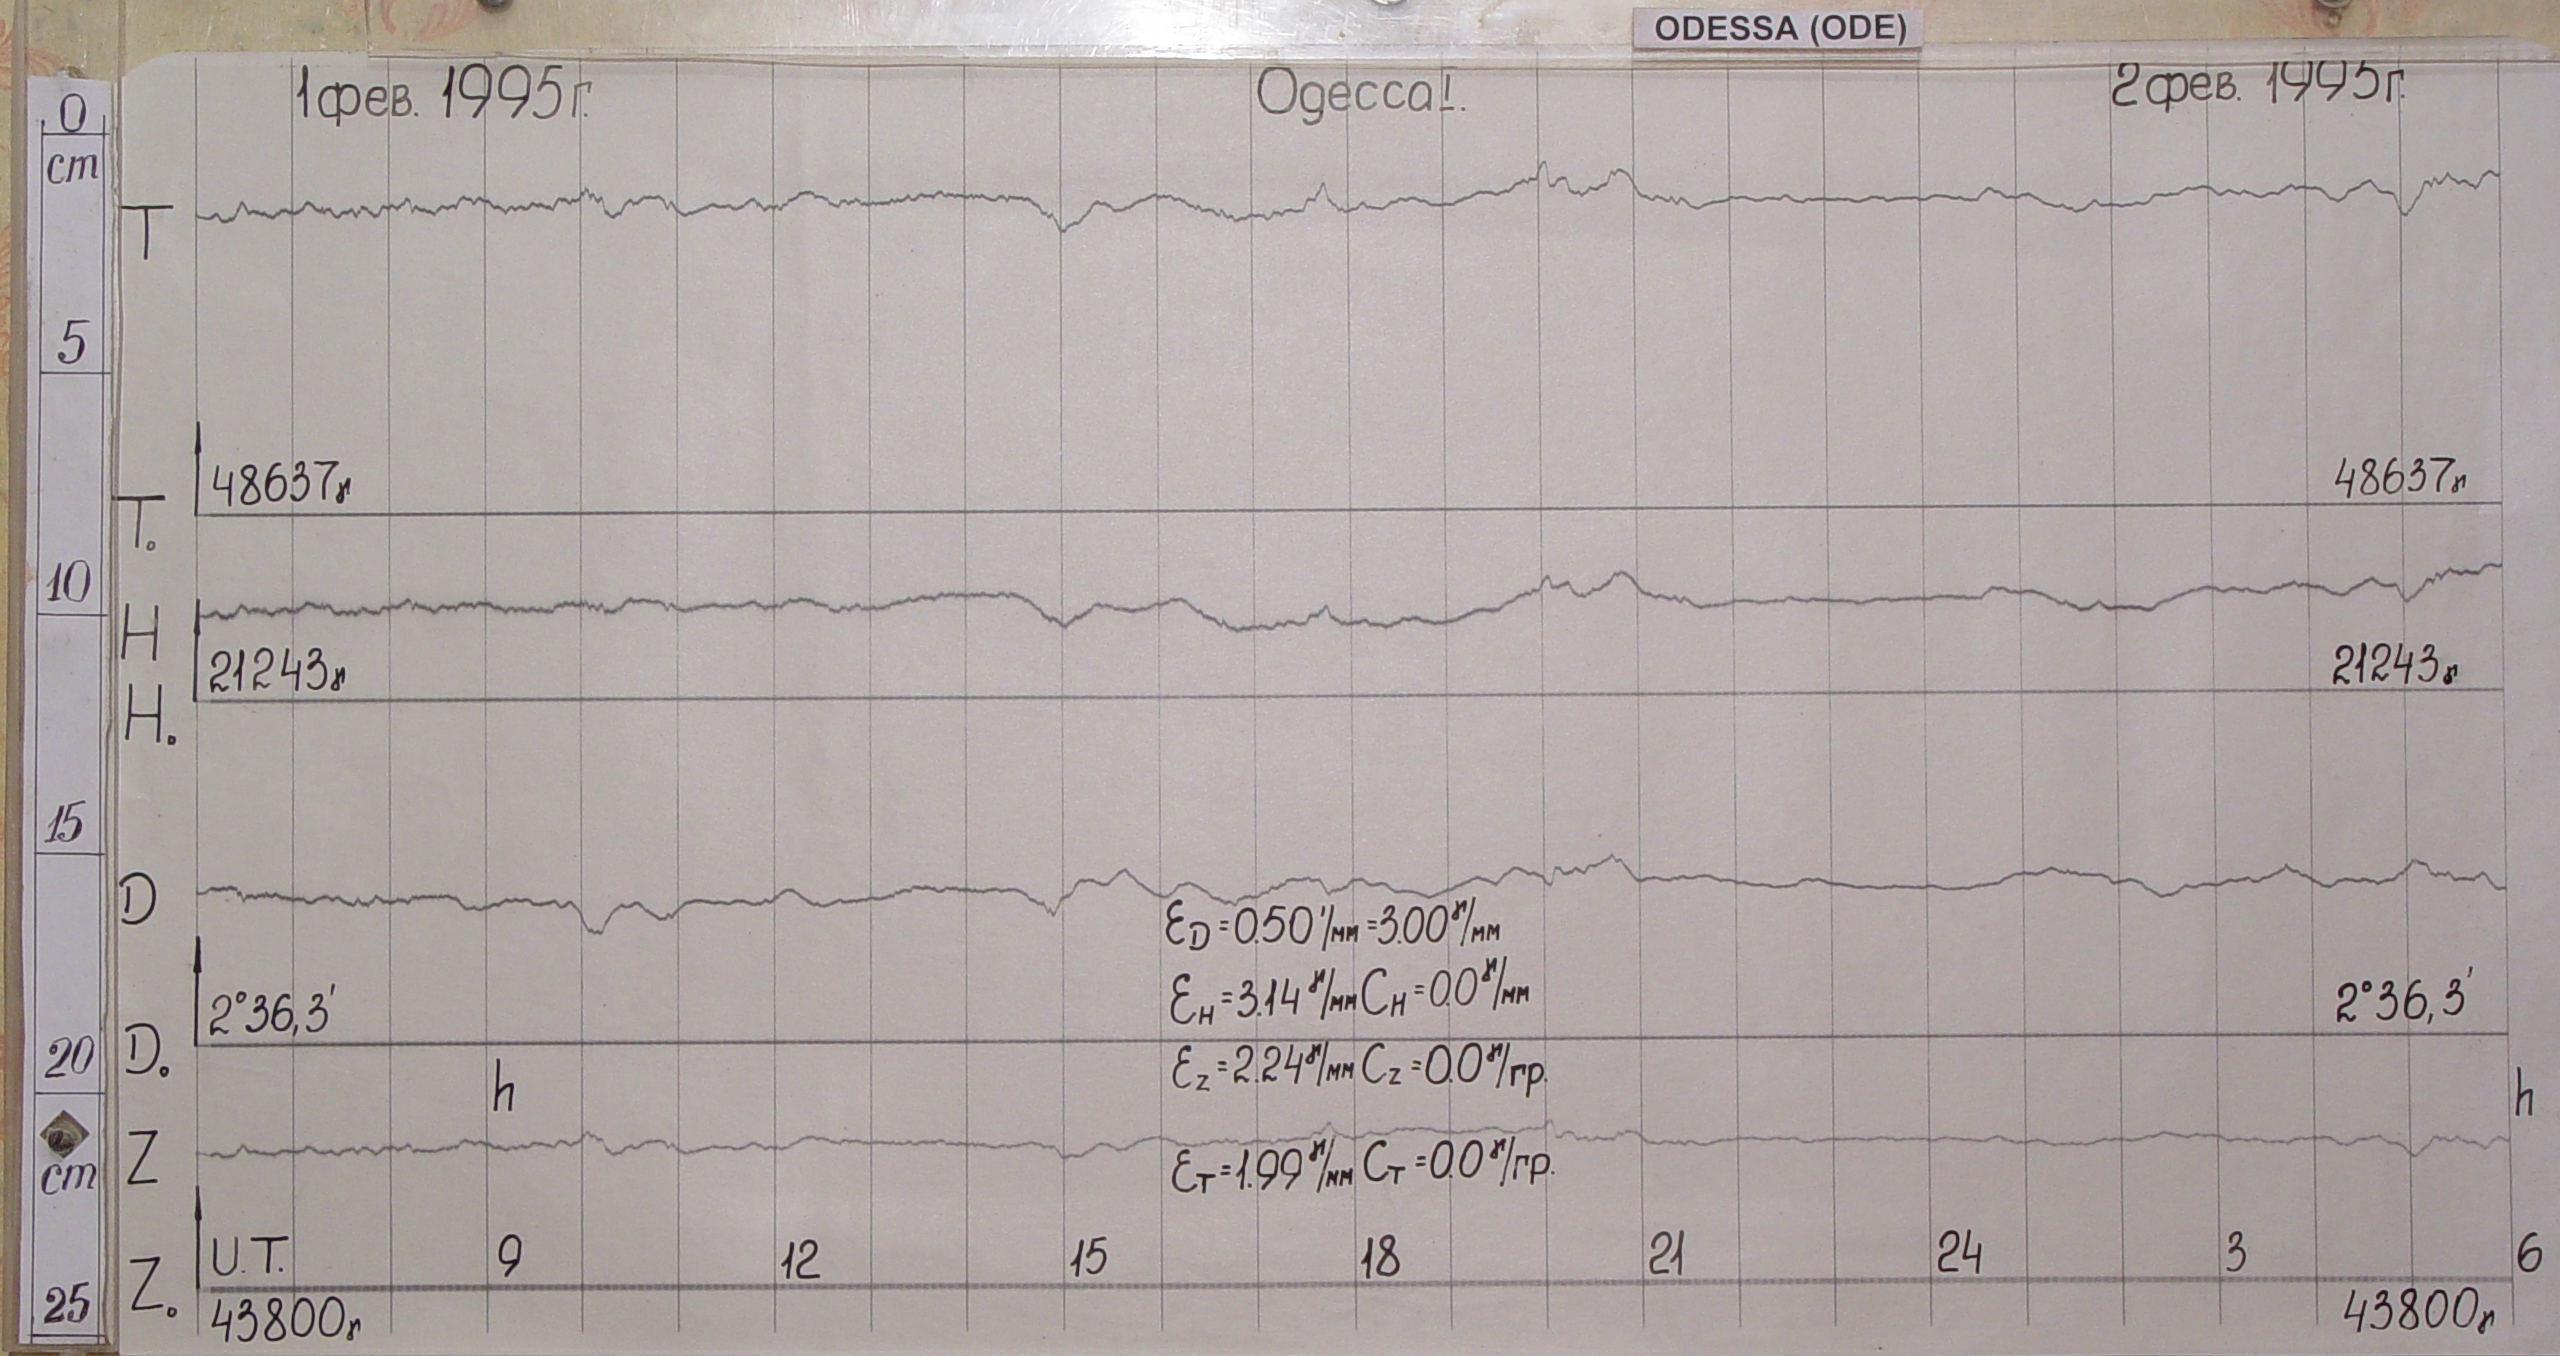 ODESSA (ODE)
1 фев. 1995г. Одесса I. 2 фев. 1995г.
0
cm
T
5
48637γ 48637γ
T.
10
H
21243γ 21243γ
H.
15
D
ƐD=0.50'/мм=3.00γ/мм
ƐH=3.14γ/мм CH=0.0γ/мм
2°36,3' 2°36,3'
20
D.
ƐZ=2.24γ/мм CZ=0.0γ/гр.
h h
Z
cm
ƐT=1.99γ/мм CT=0.0γ/гр.
U.T. 9 12 15 18 21 24 3 6
Z.
25
43800γ 43800γ